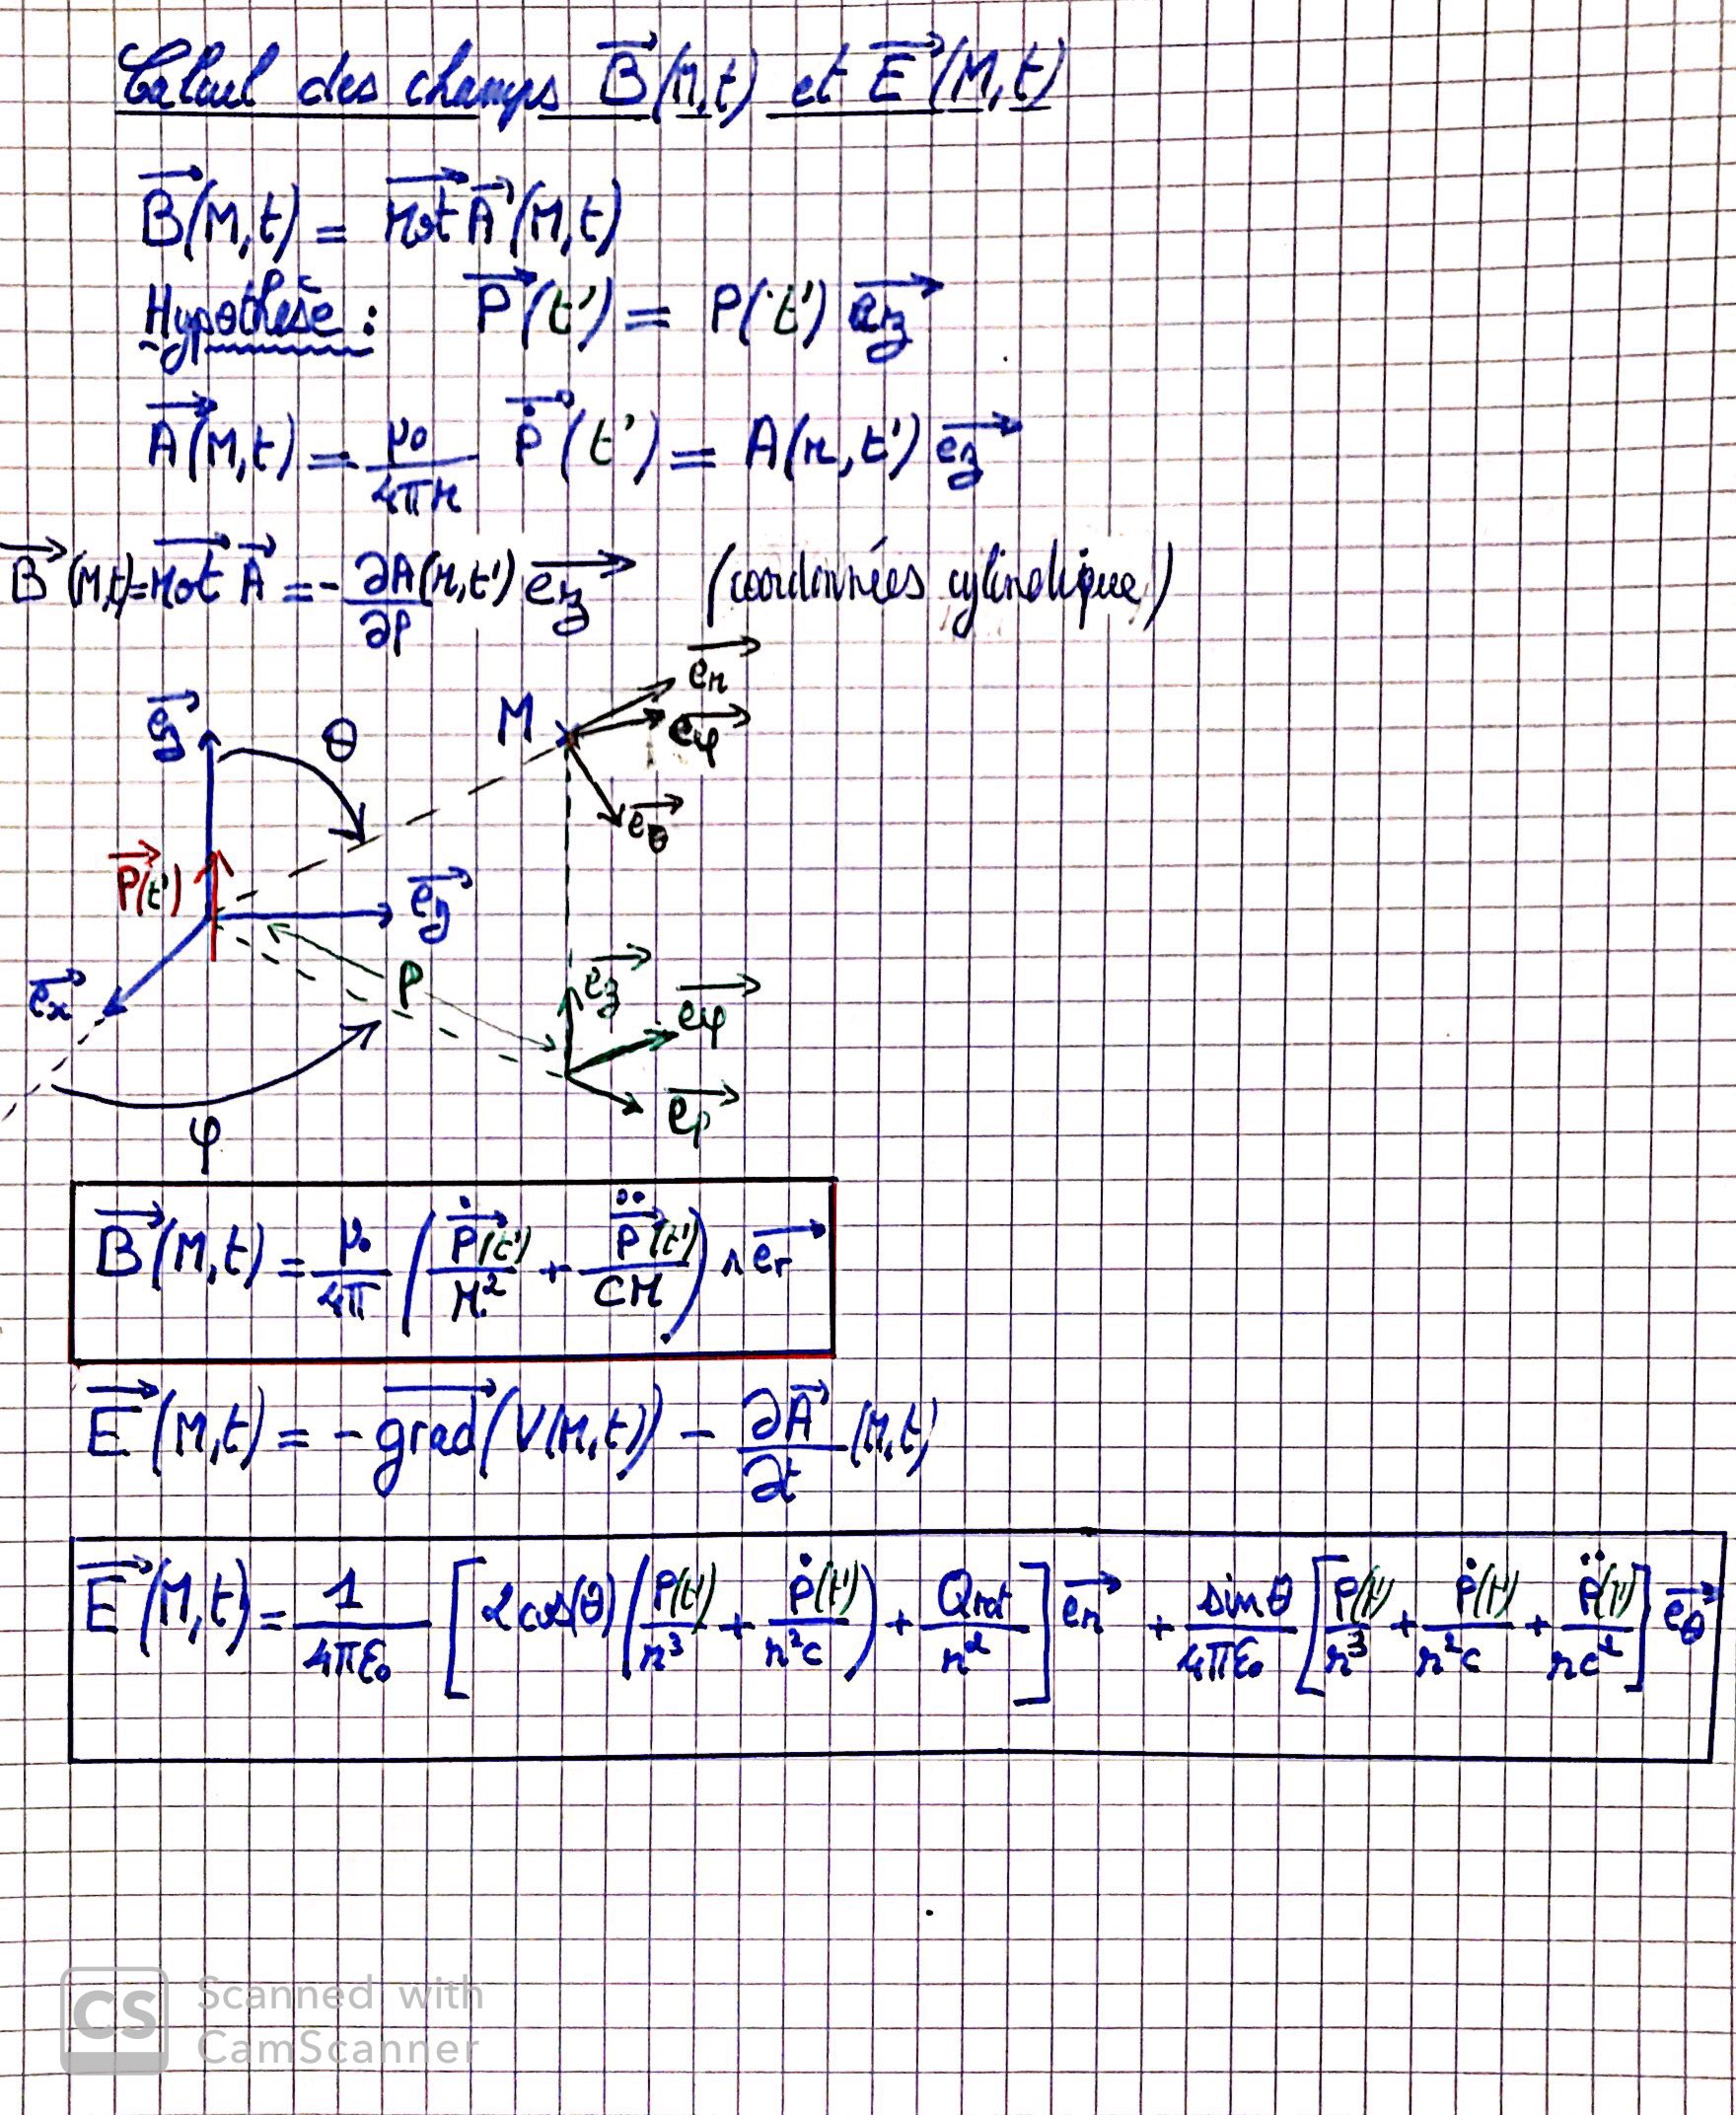 Calcul des champs B⃗(M,t) et E⃗(M,t)
B⃗(M,t) = rot⃗ A⃗(M,t)
Hypothèse : P⃗(t') = P(t') e_z⃗
A⃗(M,t) = μ₀/4πr Ṗ⃗(t') = A(r,t') e_z⃗
B⃗(M,t) = rot⃗ A⃗ = - ∂A(r,t')/∂ρ e_z⃗ (coordonnées cylindrique)
e_z⃗ θ M e_r⃗
e_φ⃗
e_θ⃗
P⃗(t') e_y⃗
e_x⃗ ρ e_z⃗ e_φ⃗
e_ρ⃗
φ
B⃗(M,t) = μ₀/4π ( Ṗ⃗(t')/r² + P̈⃗(t')/cr ) ∧ e_r⃗
E⃗(M,t) = - grad⃗(V(M,t)) - ∂A⃗/∂t (M,t)
E⃗(M,t) = 1/4πε₀ [ 2cos(θ) ( P(t')/r³ + Ṗ(t')/r²c ) + Qtot/r² ] e_r⃗ + sinθ/4πε₀ [ P(t')/r³ + Ṗ(t')/r²c + P̈(t')/rc² ] e_θ⃗
CS Scanned with
CamScanner